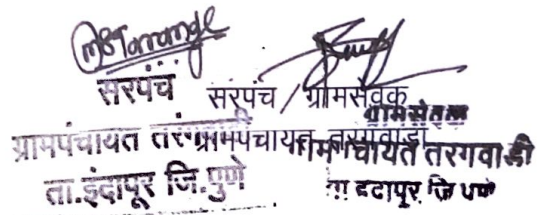 सरपंच सरपंच / ग्रामसेवक
ग्रामसेवक
ग्रामपंचायत ग्रामपंचायत तरगवाडी
ग्रामपंचायत तरगवाडी
ता.इंदापूर जि.पुणे
ता इंदापूर जि पुणे